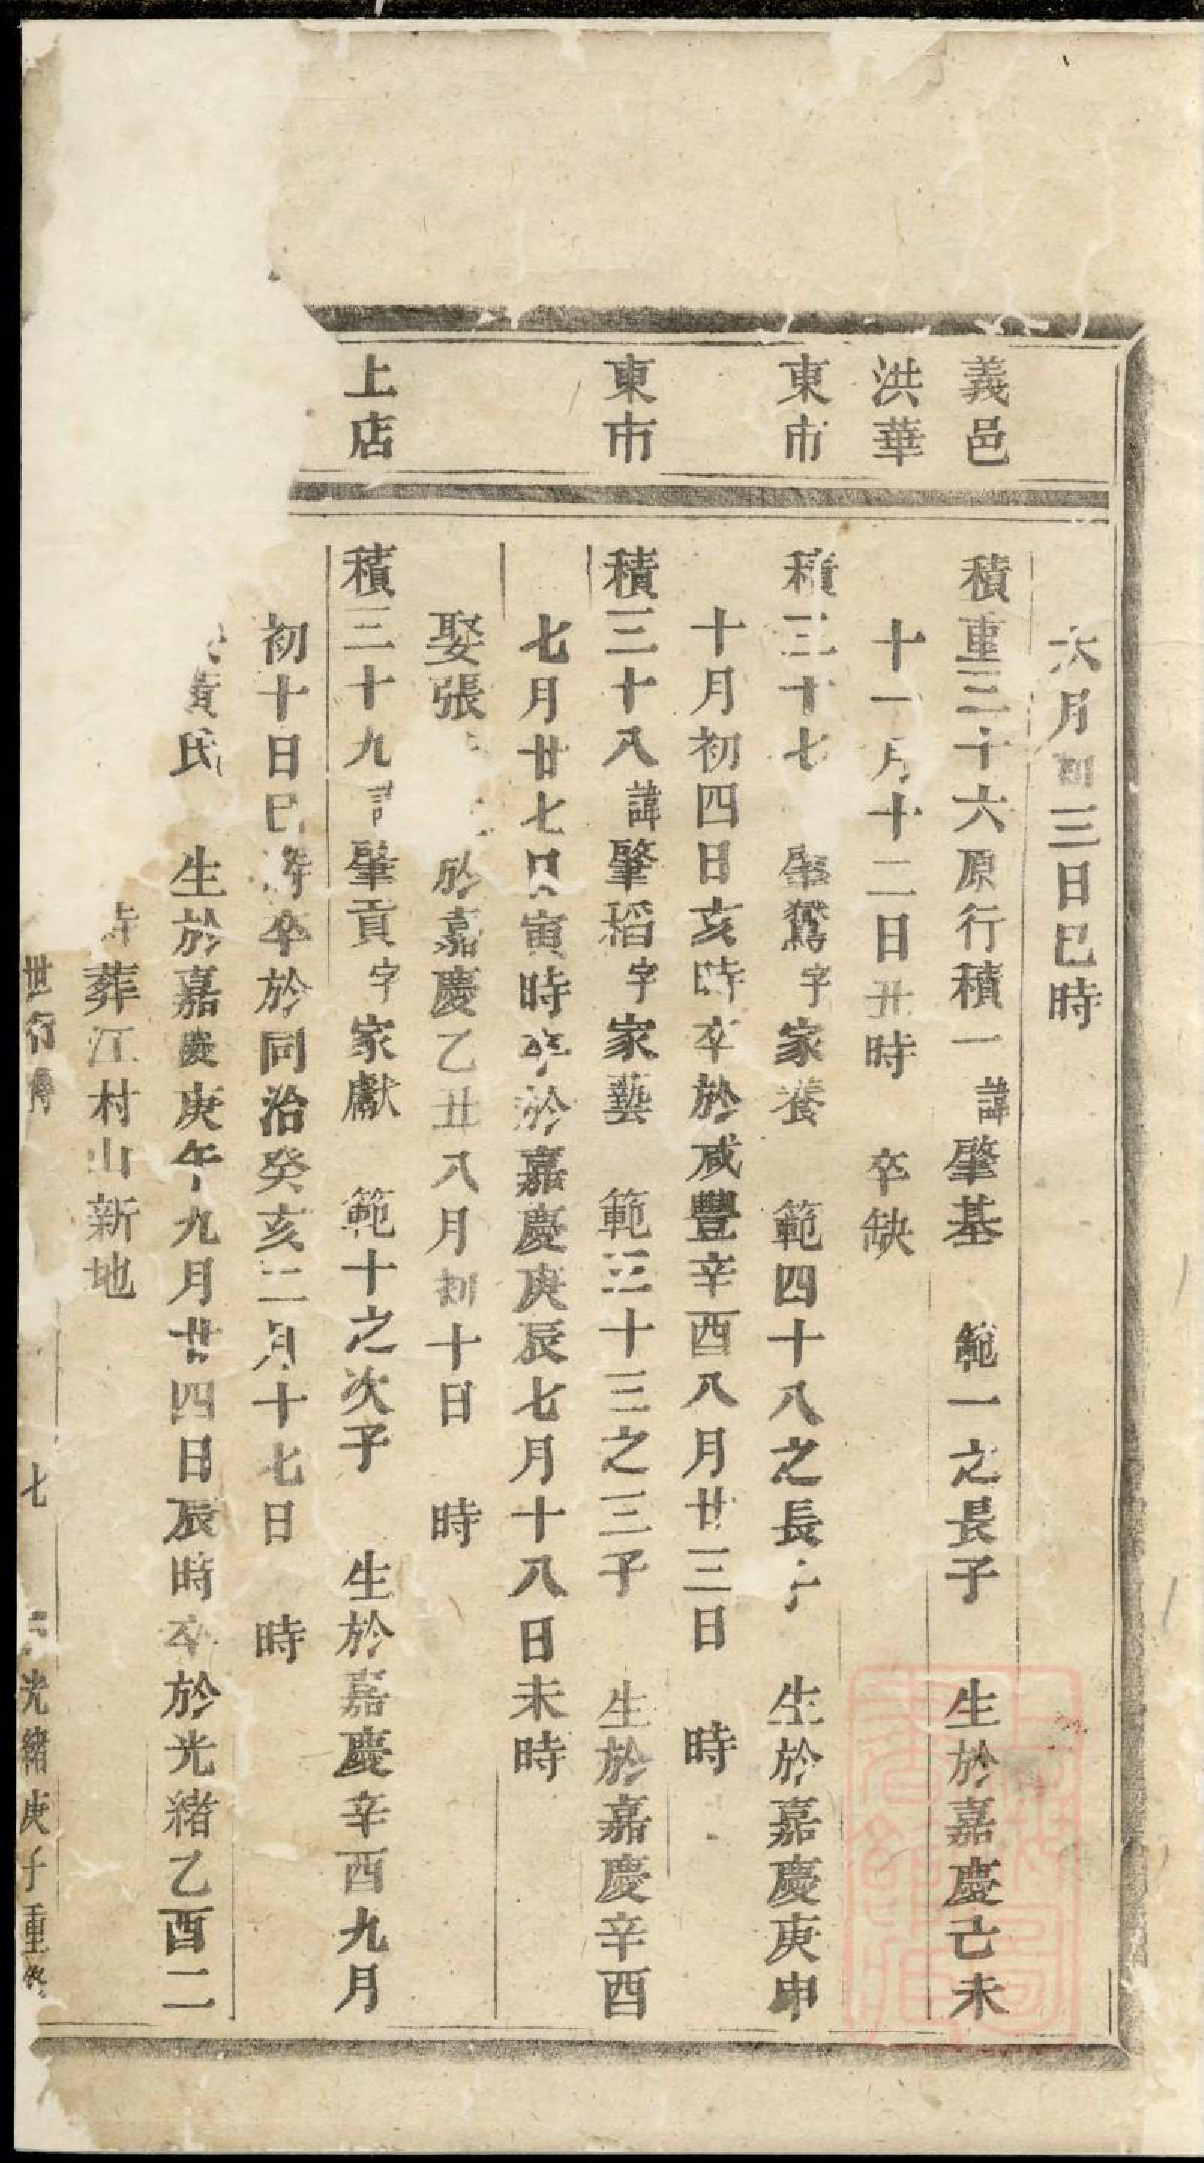 六月初三日巳時
義邑
積重三十六原行積一諱肇基 範一之長子 生於嘉慶己未
洪華
十一月十二日丑時 卒缺
東市
積三十七 肇鶩字家養 範四十八之長子 生於嘉慶庚申
十月初四日亥時卒於咸豐辛酉八月廿三日 時
東市
積三十八諱肇稻字家藝 範三十三之三子 生於嘉慶辛酉
七月廿七日寅時卒於嘉慶庚辰七月十八日未時
娶張 於嘉慶乙丑八月初十日 時
上店
積三十九諱肇貢字家獻 範十之次子 生於嘉慶辛酉九月
初十日巳時卒於同治癸亥二月十七日 時
黃氏 生於嘉慶庚午九月廿四日辰時卒於光緒乙酉二
時葬江村山新地
世行傳 七 光緒庚子重修